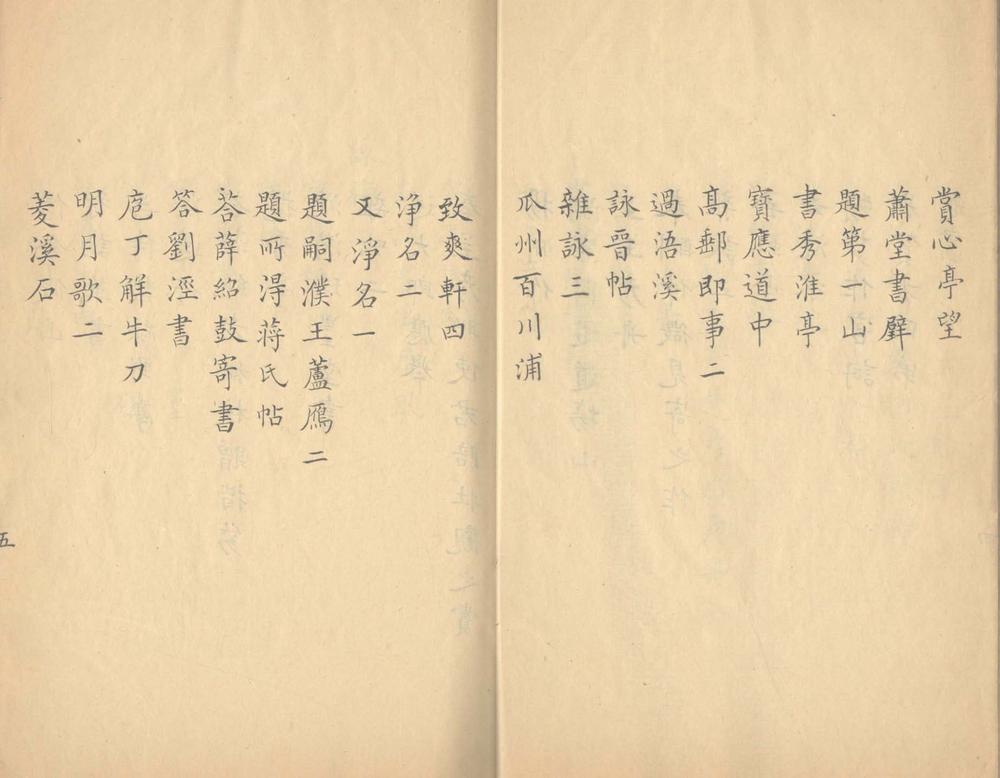 賞心亭望
蕭堂書壁
題第一山
書秀淮亭
寶應道中
高郵即事二
過浯溪
詠晉帖
雜詠三
瓜州百川浦
致爽軒四
淨名二
又淨名一
題嗣濮王蘆鴈二
題所得蔣氏帖
荅薛紹鼓寄書
答劉涇書
庖丁解牛刀
明月歌二
菱溪石
五